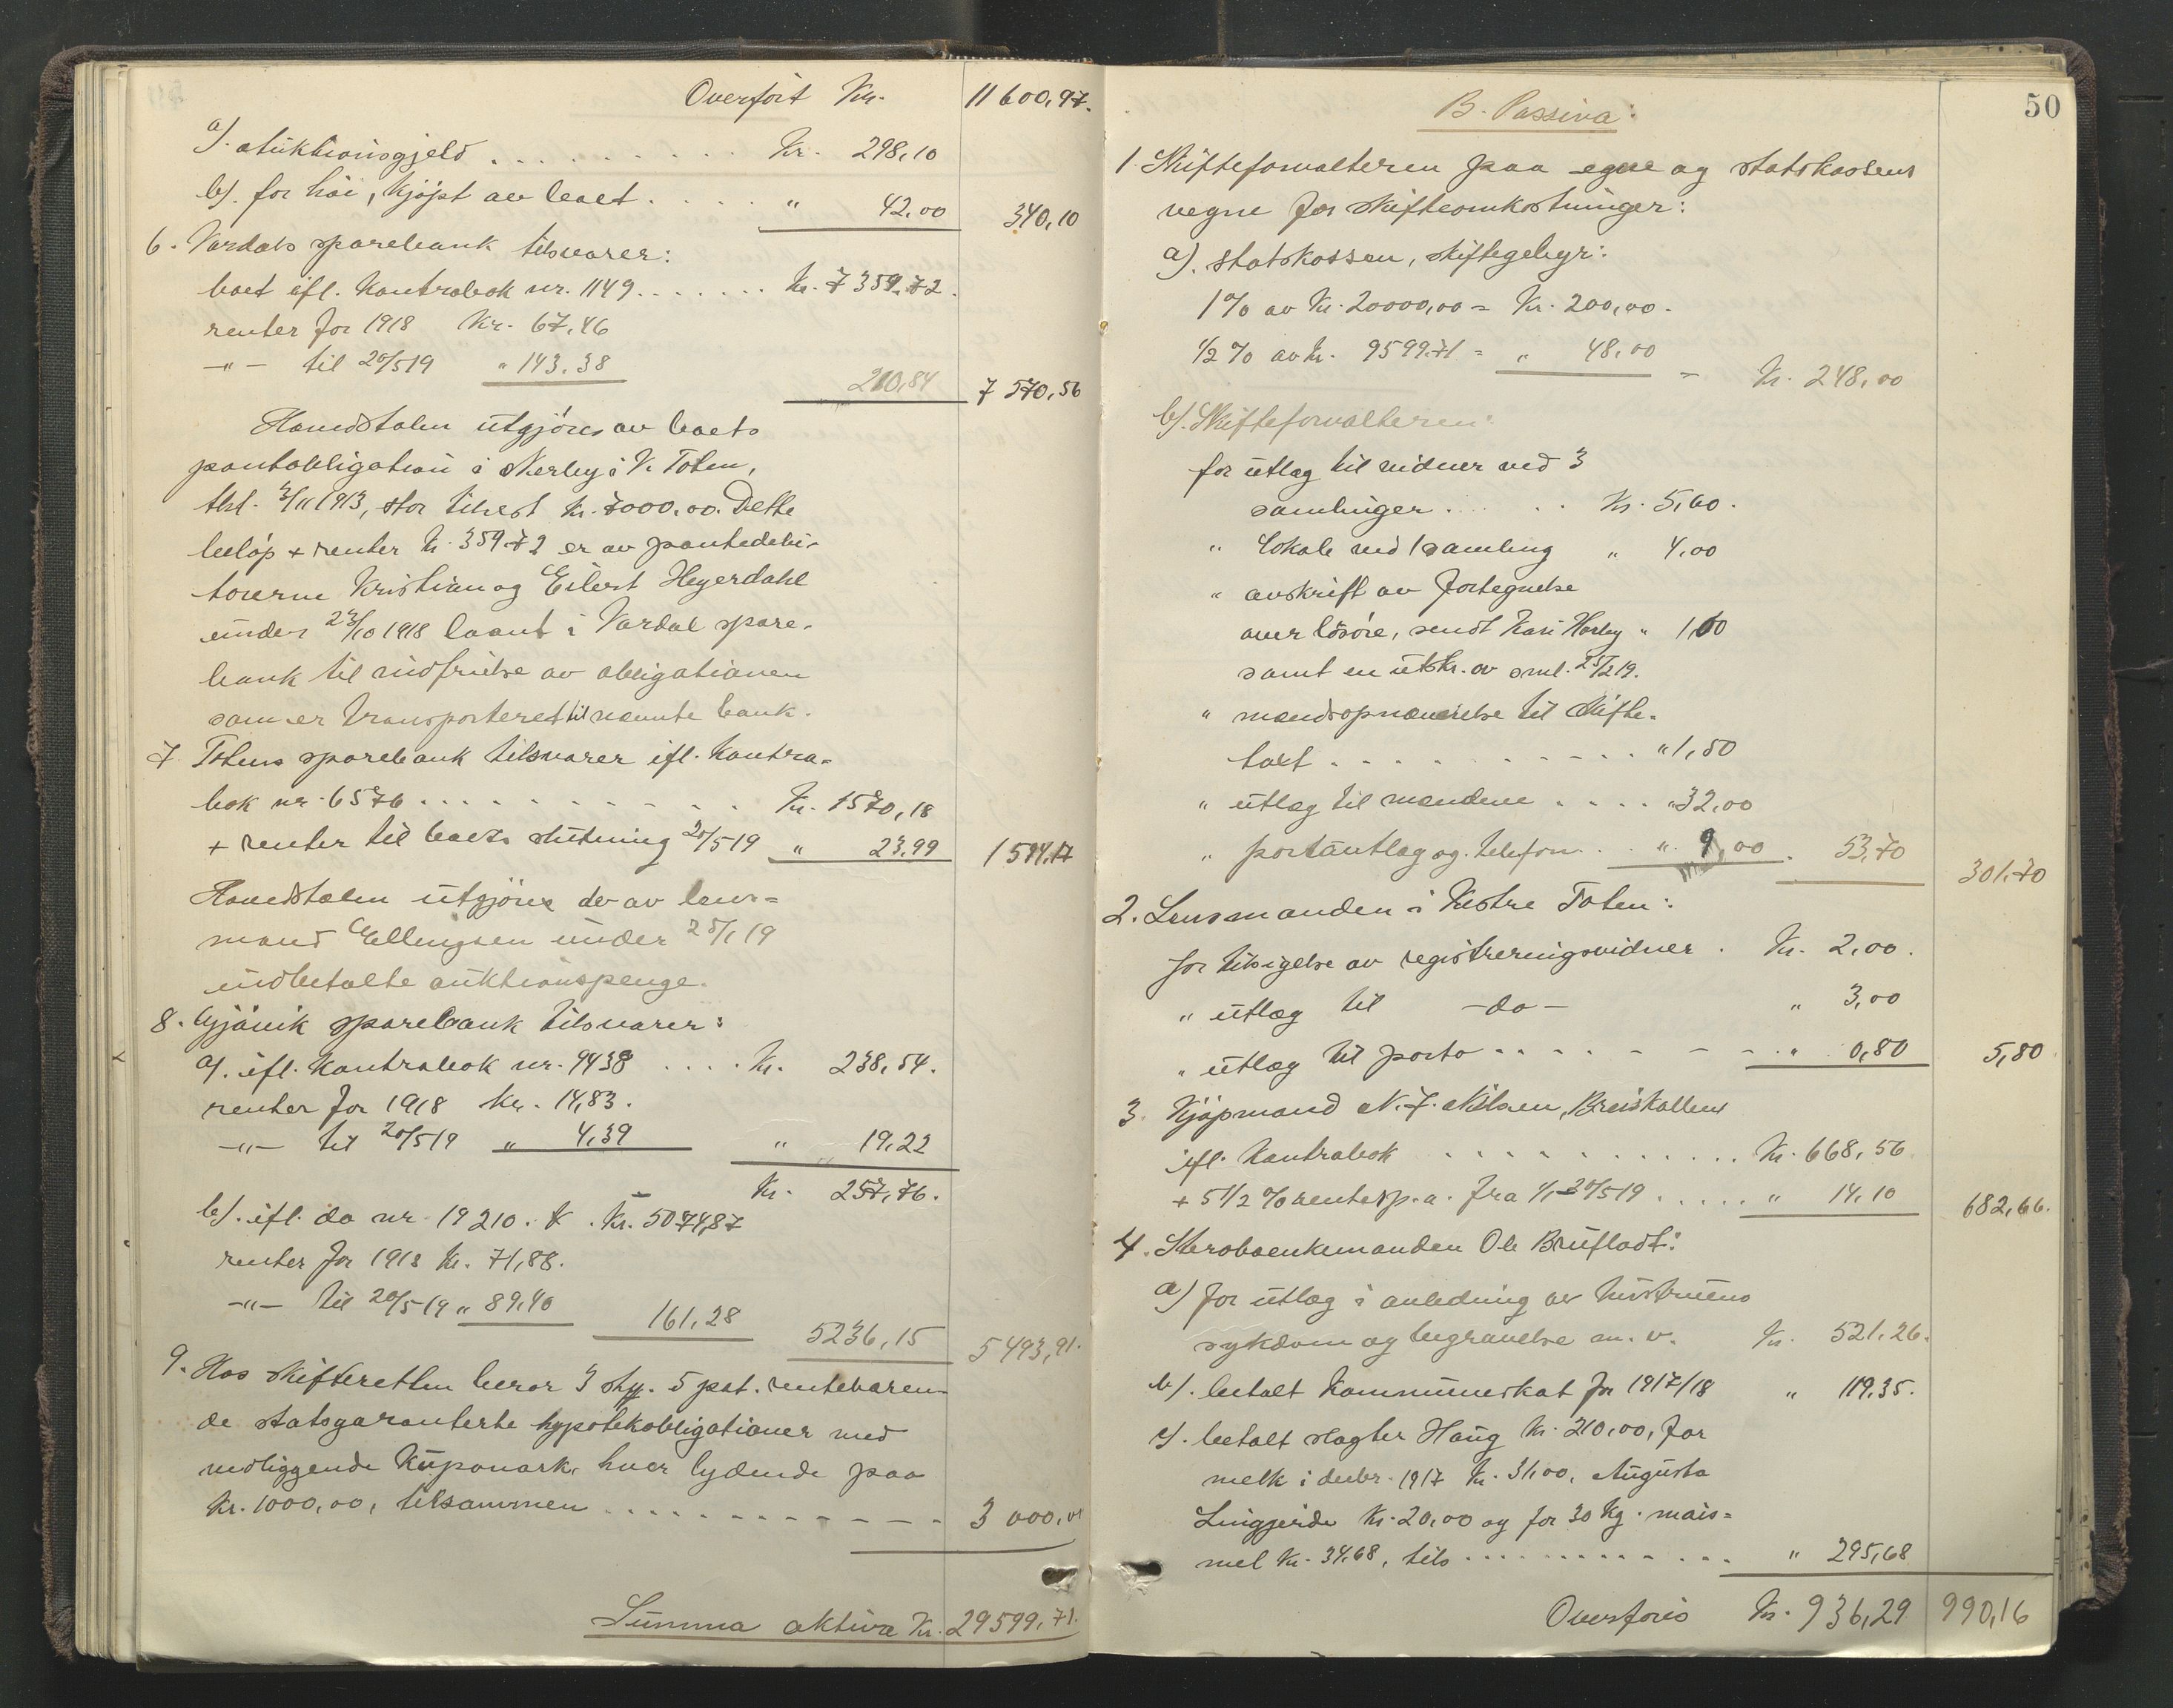 Overført Kr. 11600,97.
a). auktionsgjeld . . . . . . . . . . Kr. 298,10
b). for høi, kjøpt av boet . . . . . " 42,00 340,10
6. Vardals sparebank tilsvarer:
boet ifl. Kontrabok nr. 1149 . . . . . . . Kr. 7359,72.
renter for 1918 Kr. 67,46
-"- til 20/5 19 " 143,38 210,84 7570,56
Hovedstolen utgjøres av boets
pantobligation i Nerby i V. Toten,
tlst. 3/11 1913, stor tilrest kr. 7000,00. Dette
beløp + renter kr. 359,72 er av pantedebi-
torerne Kristian og Eilert Heyerdahl
under 23/10 1918 laant i Vardal spare-
bank til indfrielse av obligationen
som er transporteret til nævnte bank.
7. Totens sparebank tilsvarer ifl. Kontra-
bok nr. 6576 . . . . . . . . . . . Kr. 1570,18
+ renter til boets slutning 20/5 19 " 23,99 1594,17
Hovedstolen utgjøres de av lens-
mand Ellingsen under 25/1 19
indbetalte auktionspenge.
8. Gjøvik sparebank tilsvarer:
a). ifl. kontrabok nr. 9438 . . . . Kr. 238,54.
renter for 1918 Kr. 14,83.
-"- til 20/5 19 " 4,39 " 19,22
Kr. 257,76.
b). ifl. do nr. 19210. Kr. 5074,87
renter for 1918 Kr. 71,88.
-"- til 20/5 19 " 89,40 161,28 5236,15 5493,91.
9. Hos skifteretten beror 3 stk. 5 pct. rentebæren-
de statsgaranterte hypotekobligationer med
vedliggende Kuponark, hver lydende paa
Kr. 1000,00, tilsammen . . . . . . . . . . . . 3 000,00
Summa aktiva Kr. 29599,71.
50
B. Passiva:
1. Skifteforvalteren paa egne og statskassens
vegne for skifteomkostninger:
a). statskassen, skiftegebyr:
1% av Kr. 20000,00 = Kr. 200,00.
1/2 % av Kr. 9599,71 = " 48,00 = Kr. 248,00
b). Skifteforvalteren:
for utlæg til vidner ved 3
samlinger . . . . . Kr. 5,60.
" Lokale ved 1 samling " 4,00
" avskrift av fortegnelse
over løsøre, sendt Kari Horby " 1,60
samt en utskr. av sml. 25/2 19.
" mandsopnævnelse til skifte-
taxt . . . . . . . . . . . " 1,50
" utlæg til mændene . . . . " 32,00
" portoutlæg og telefon . . " 9,00 . 53,70 301,70
2. Lensmanden i Vestre Toten:
for tilsigelse av registreringsvidner . Kr. 2,00.
" utlæg til -do- " 3,00
" utlæg til porto . . . . . . . . " 0,80 5,80
3. Kjøpmand N. J. Nilsen, Breiskallen
ifl. Kontrabok . . . . . . . . . . . . Kr. 668,56
+ 5 1/2 % rente p. a. fra 1/1-20/5 19 . . . . . " 14,10 682,66.
4. Skrabænkemanden Ole Brufladt:
a) for utlæg i anledning av hustruens
sykdom og begravelse m. v. Kr. 521,26.
b). betalt kommuneskat for 1917/18 " 119,35.
c). betalt slagter Haug Kr. 210,00, for
melk i decbr. 1917 Kr. 31,00, Augusta
Linggjerde Kr. 20,00 og for 30 Kg. mais-
mel Kr. 34,68, tils . . . . . . . . . . . . " 295,68
Overføres Kr. 936,29 990,16